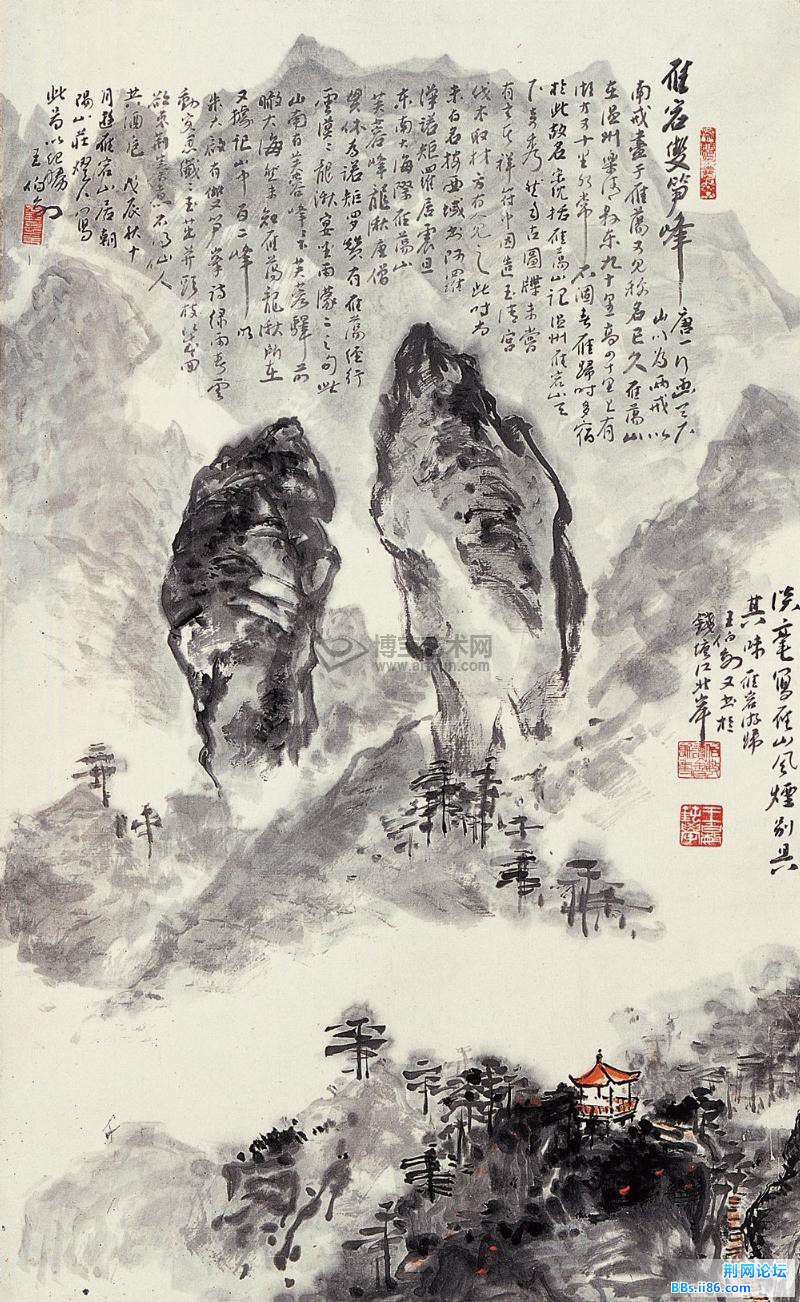 雁宕雙笋峰
唐一行画天下
山川為兩戒以
南戒盡于雁蕩方見稱名已久雁蕩山
在温州樂清縣東九十里高四十里上有
湖方可十里水常不涸春雁歸時多宿
於此故名沈括雁蕩山記温州雁宕山天
下奇秀然自古圖牒未嘗
有言者祥符中因造玉清宫
伐木取材方有人見之此時尚
未有名按西域書阿羅
漢諾矩羅居震旦
東南大海際雁蕩山
芙蓉峰龍湫唐僧
貫休為諾矩罗贊有雁蕩經行
雲漠漠龍湫宴坐雨濛濛之句此
山南有芙蓉峰下芙蓉驛前
瞰大海然未知雁蕩龍湫所在
又攟記山中百二峰以
朱大啟有雙笋峯詩緑雨春雲
欲
共酒
戊辰秋十
月遊雁宕山居朝
陽山莊燈下寫
此為以紀勝
王伯敏
淡毫寫雁山風煙别具
其味雁宕遊歸
王伯敏又書於
錢塘江北岸
博宝艺术网
www.artxun.com
荆网论坛
BBs.ii86.com